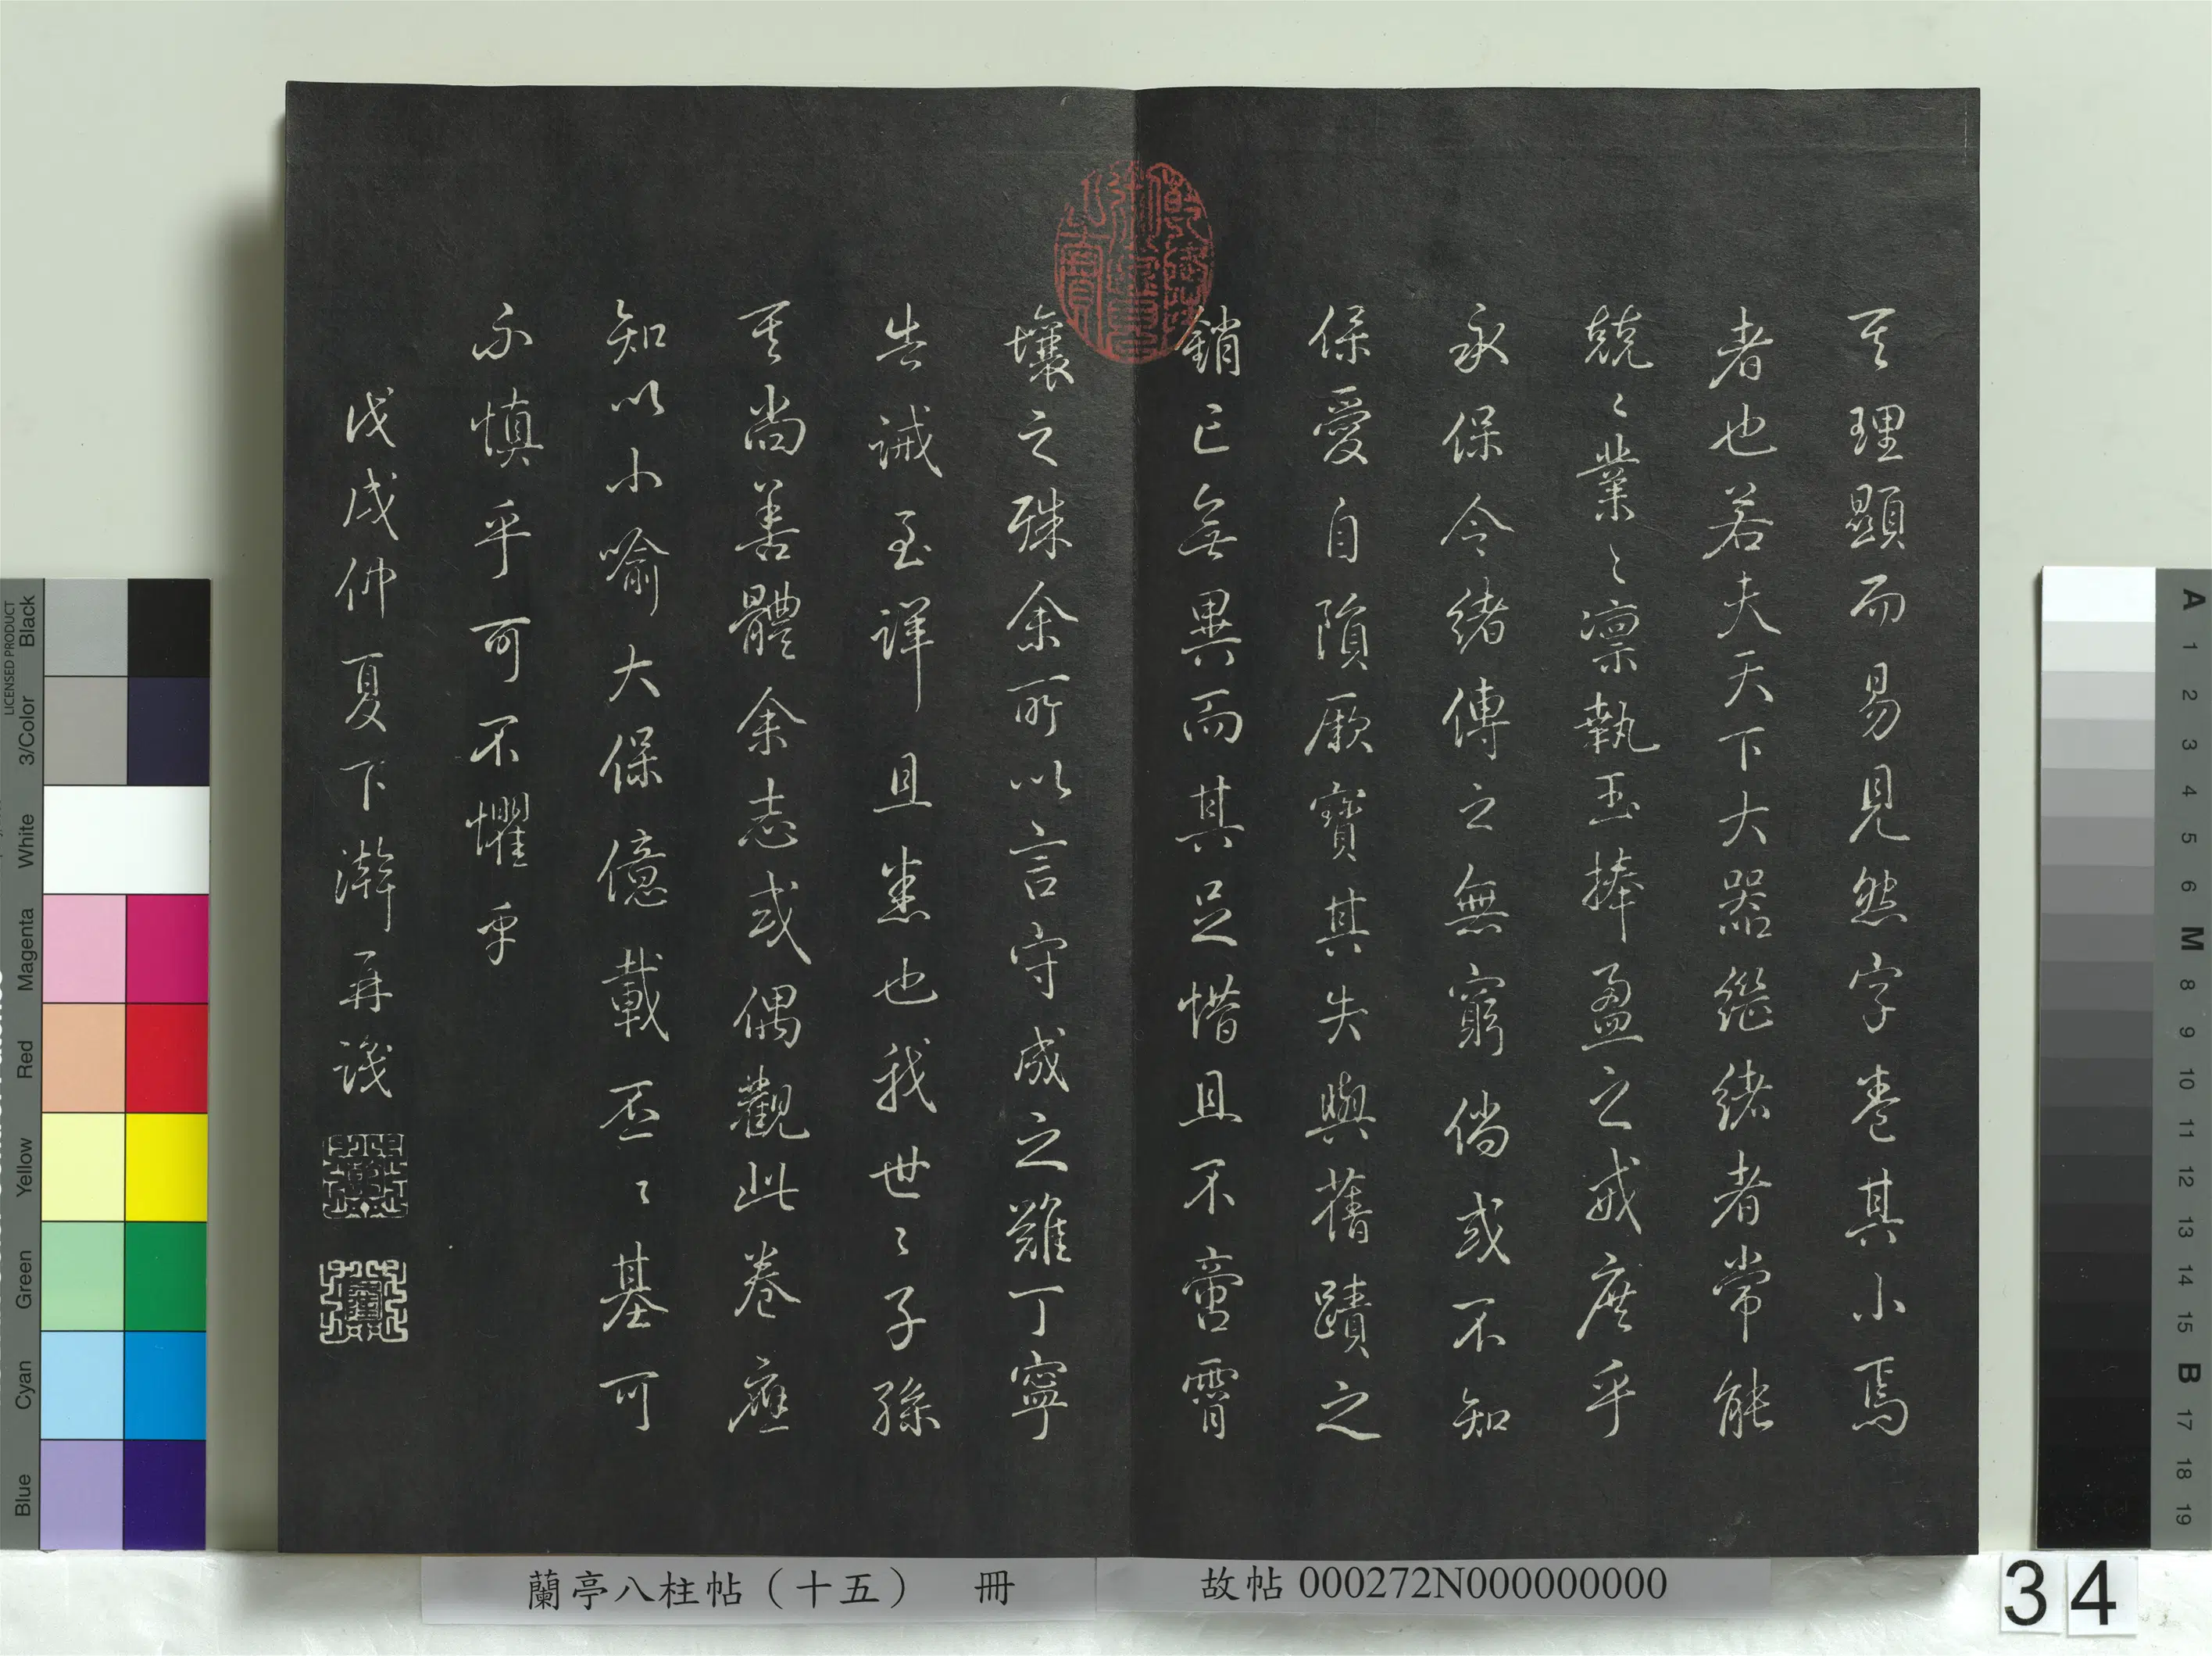 其理顯而易見然字卷其小焉
者也若夫天下大器繼緒者常能
兢〻業〻凛執玉捧盈之戒庶乎
永保令緒傳之無窮倘或不知
保愛自隕厥寶其失與舊蹟之
銷亡無異而其足惜且不啻霄
壤之殊余所以言守成之難丁寧
告誡至詳且悉也我世〻子孫
其尚善體余志或偶觀此卷應
知以小喻大保億載丕〻基可
不慎乎可不懼乎
戊戌仲夏下澣再識
蘭亭八柱帖（十五） 冊
故帖 000272N000000000
34
LICENSED PRODUCT
Black
3/Color
White
Magenta
Red
Yellow
Green
Cyan
Blue
A
1
2
3
4
5
6
M
8
9
10
11
12
13
14
15
B
17
18
19